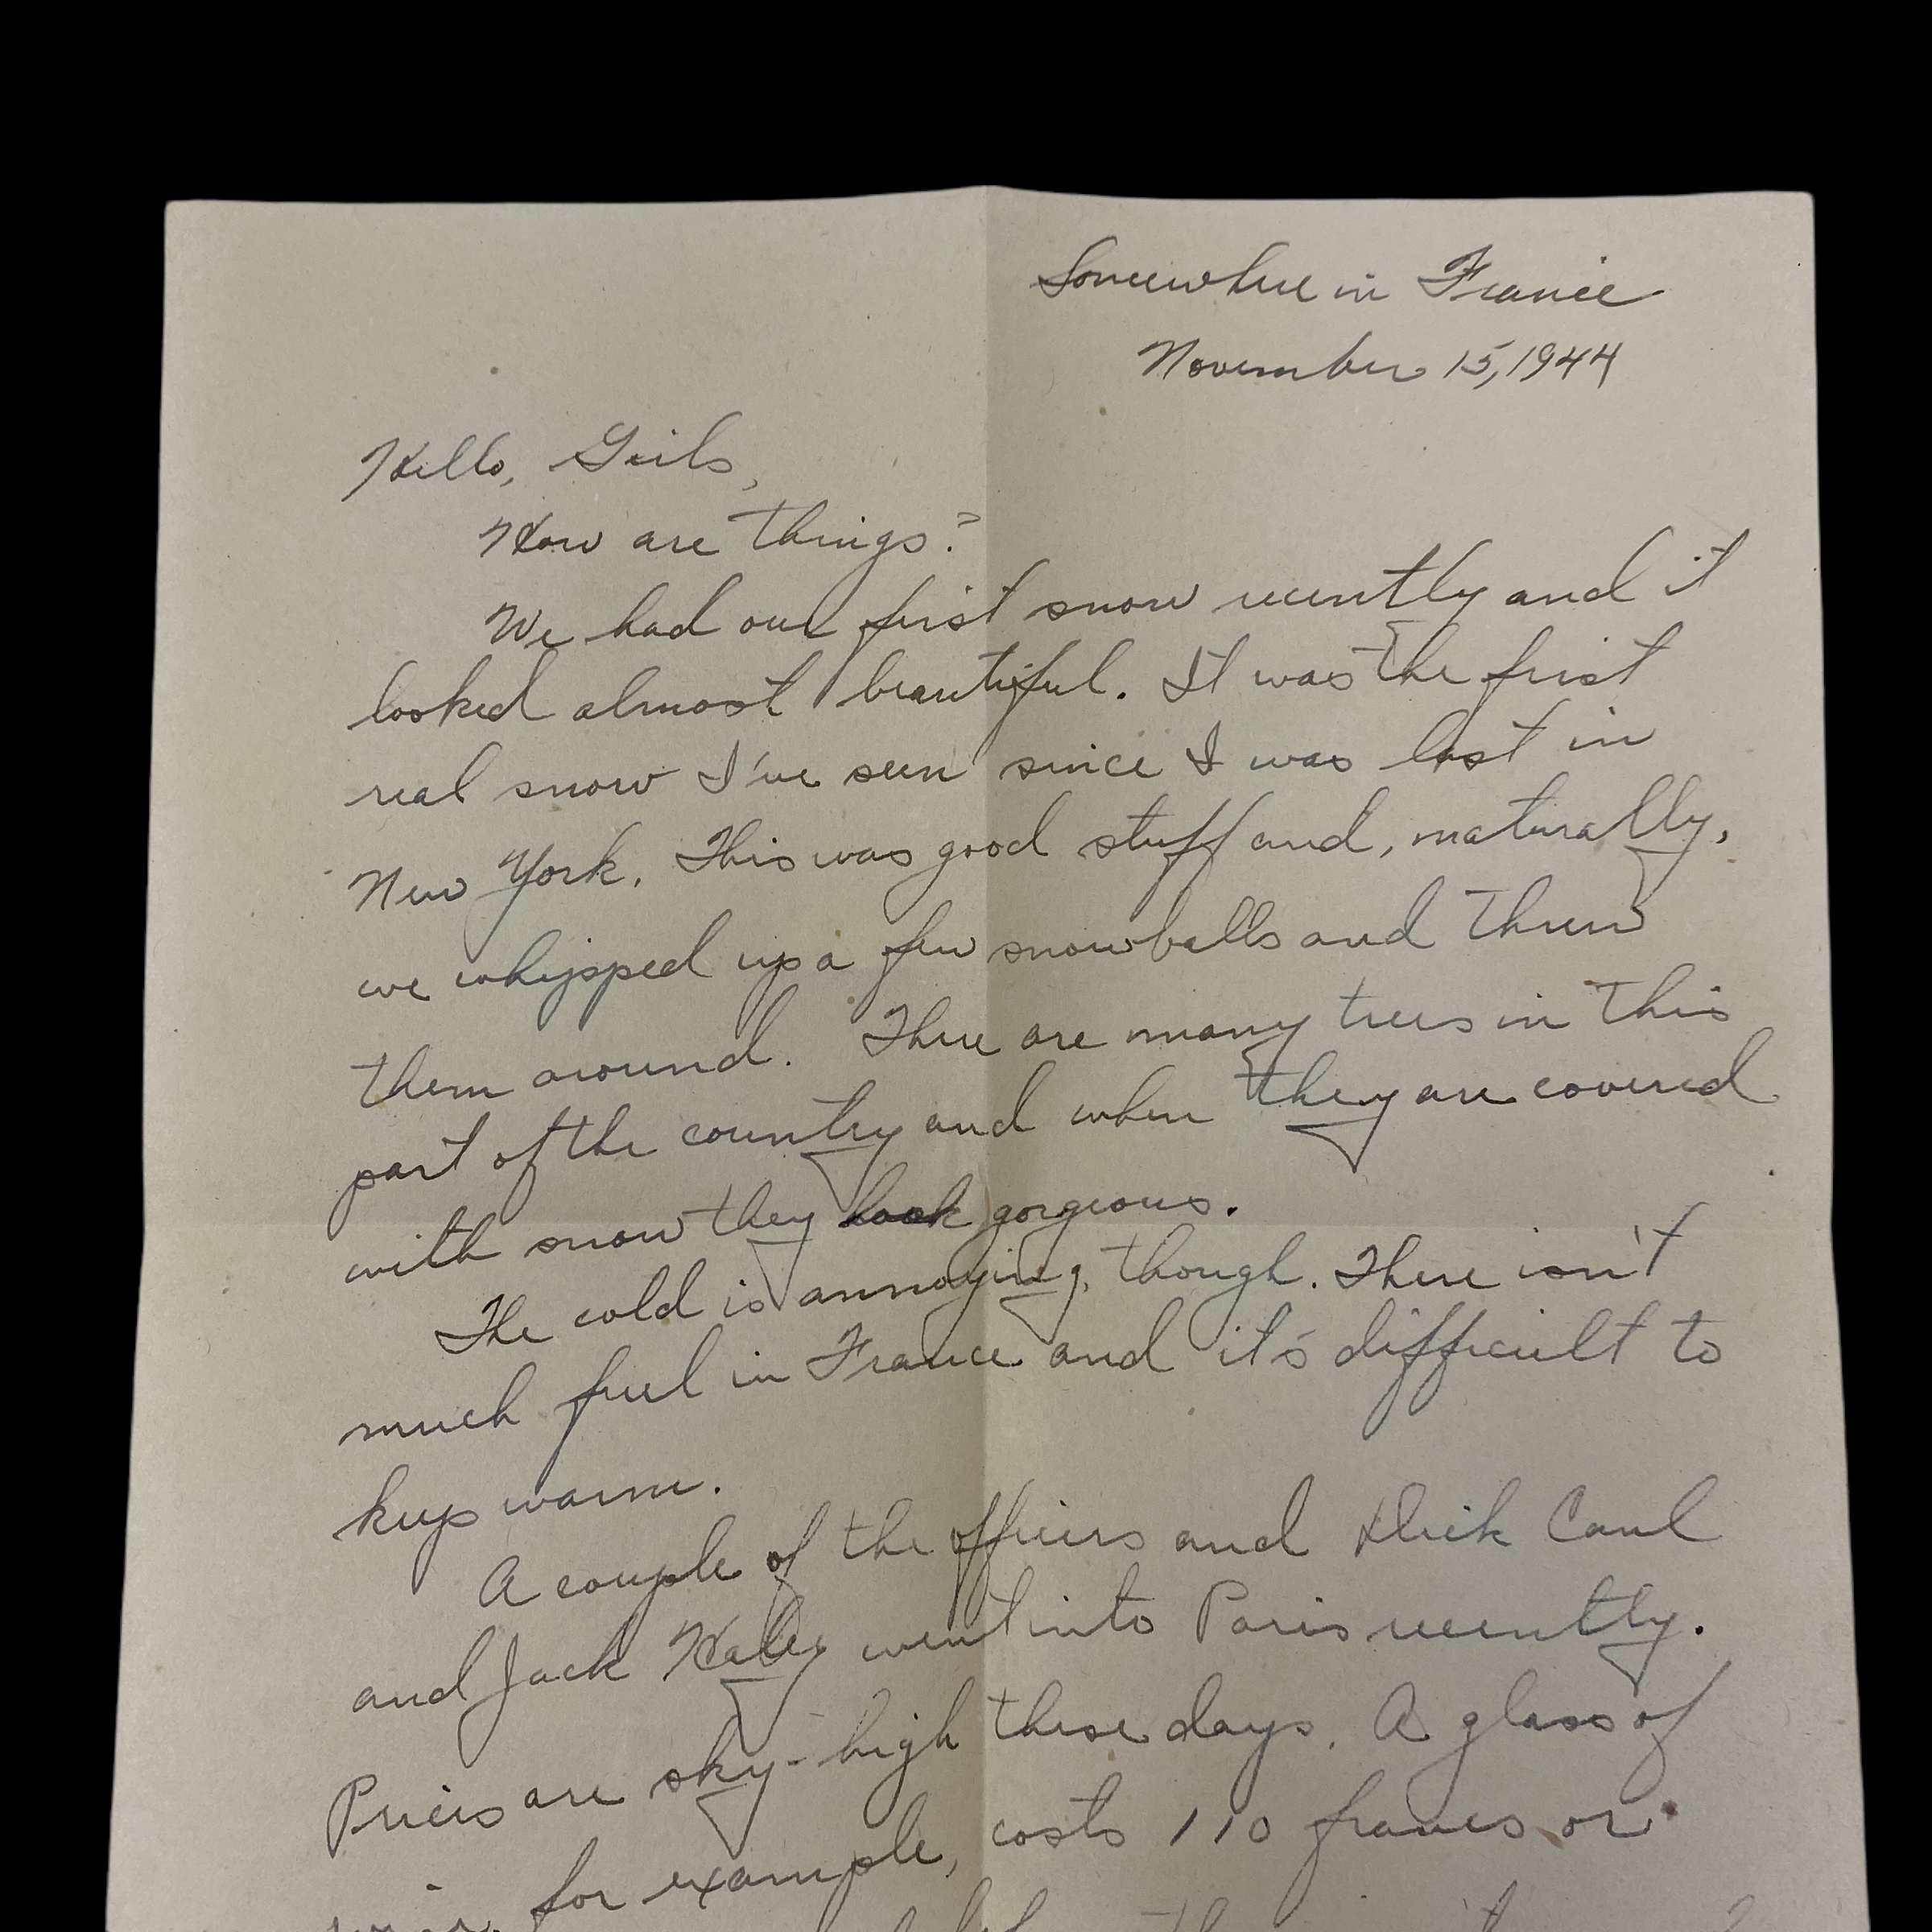 Somewhere in France
November 15, 1944
Hello, Girls,
How are things?
We had our first snow recently and it
looked almost beautiful. It was the first
real snow I've seen since I was last in
New York. This was good stuff and, naturally,
we whipped up a few snowballs and threw
them around. There are many trees in this
part of the country and when they are covered
with snow they look gorgeous.
The cold is annoying, though. There isn't
much fuel in France and it's difficult to
keep warm.
A couple of the officers and Dick Caul
and Jack Haley went into Paris recently.
Prices are sky-high these days. A glass of
for example, costs 110 francs or